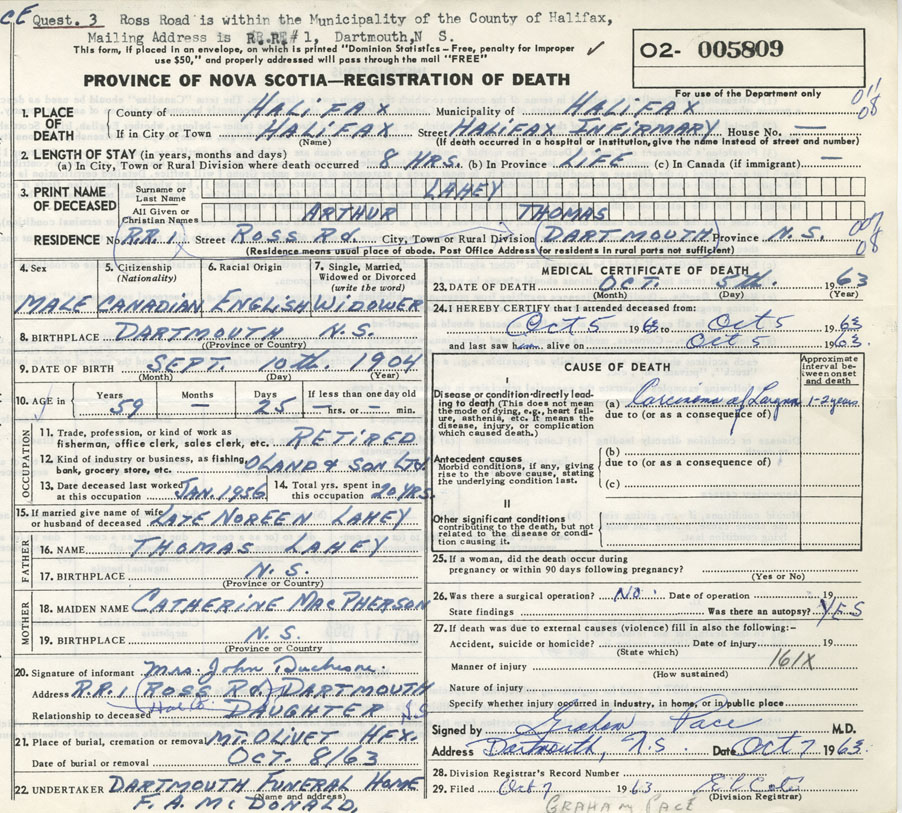 CE Quest. 3 Ross Road is within the Municipality of the County of Halifax,
Mailing Address is RR.RE# 1, Dartmouth,N S.
This form, if placed in an envelope, on which is printed "Dominion Statistics – Free, penalty for improper
use $50," and properly addressed will pass through the mail "FREE"
O2- 005809
PROVINCE OF NOVA SCOTIA—REGISTRATION OF DEATH
For use of the Department only
1. PLACE OF DEATH
County of HALIFAX Municipality of HALIFAX 011 08
If in City or Town HALIFAX Street HALIFAX INFIRMARY House No. —
(Name) (If death occurred in a hospital or institution, give the name instead of street and number)
2. LENGTH OF STAY (in years, months and days)
(a) In City, Town or Rural Division where death occurred 8 HRS. (b) In Province LIFE (c) In Canada (if immigrant) —
3. PRINT NAME OF DECEASED
Surname or Last Name LAHEY
All Given or Christian Names ARTHUR THOMAS
RESIDENCE No. RR.1 Street ROSS Rd. City, Town or Rural Division DARTMOUTH Province N.S. 08
(Residence means usual place of abode. Post Office Address for residents in rural parts not sufficient)
4. Sex 5. Citizenship (Nationality) 6. Racial Origin 7. Single, Married, Widowed or Divorced (write the word)
MALE CANADIAN ENGLISH WIDOWER
8. BIRTHPLACE DARTMOUTH N.S.
(Province or Country)
9. DATE OF BIRTH SEPT. 10th. 1904
(Month) (Day) (Year)
10. AGE in Years 59 Months — Days 25 If less than one day old — hrs. or — min.
OCCUPATION
11. Trade, profession, or kind of work as fisherman, office clerk, sales clerk, etc. RETIRED
12. Kind of industry or business, as fishing, bank, grocery store, etc. OLAND & SON LTD.
13. Date deceased last worked at this occupation JAN. 1956 14. Total yrs. spent in this occupation 20 YRS.
15. If married give name of wife or husband of deceased LATE NOREEN LAHEY
FATHER
16. NAME THOMAS LAHEY
17. BIRTHPLACE N.S.
(Province or Country)
MOTHER
18. MAIDEN NAME CATHERINE MACPHERSON
19. BIRTHPLACE N.S.
(Province or Country)
20. Signature of informant Mrs. John
Address R.R.1 (ROSS RD.) DARTMOUTH
Relationship to deceased DAUGHTER N.S.
21. Place of burial, cremation or removal MT. OLIVET HFX.
Date of burial or removal OCT. 8/63
22. UNDERTAKER DARTMOUTH FUNERAL HOME
(Name and address)
F. A. McDONALD,
MEDICAL CERTIFICATE OF DEATH
23. DATE OF DEATH OCT. 5th. 1963
(Month) (Day) (Year)
24. I HEREBY CERTIFY that I attended deceased from
Oct 5 1963 to Oct 5 1963
and last saw h alive on Oct 5 1963.
CAUSE OF DEATH
Approximate interval between onset and death
I
Disease or condition directly leading to death (This does not mean the mode of dying, e.g., heart failure, asthenia, etc. It means the disease, injury, or complication which caused death.)
(a) Carcinoma of Larynx 1-2 years
due to (or as a consequence of)
Antecedent causes
Morbid conditions, if any, giving rise to the above cause, stating the underlying condition last.
(b)
due to (or as a consequence of)
(c)
II
Other significant conditions
contributing to the death, but not related to the disease or condition causing it.
25. If a woman, did the death occur during pregnancy or within 90 days following pregnancy?
(Yes or No)
26. Was there a surgical operation? NO. Date of operation 19
State findings Was there an autopsy? YES
27. If death was due to external causes (violence) fill in also the following:-
Accident, suicide or homicide? Date of injury 19
(State which)
Manner of injury 161X
(How sustained)
Nature of injury
Specify whether injury occurred in industry, in home, or in public place
Signed by Graham Pace M.D.
Address Dartmouth, N.S. Date Oct 7 1963.
28. Division Registrar's Record Number
29. Filed Oct 7 1963
(Division Registrar)
GRAHAM PACE